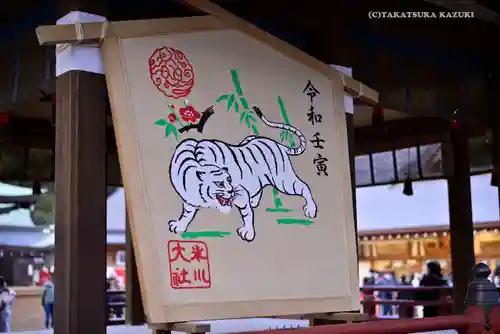 (C)TAKATSUKA KAZUKI
令和壬寅
氷川
大社